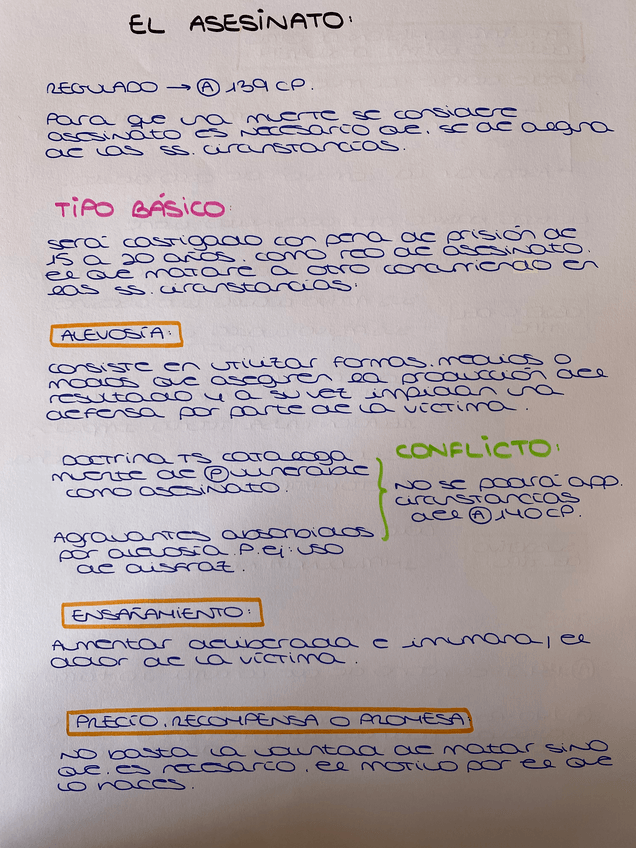 EL ASESINATO:
REGULADO → Ⓐ 139 CP.
Para que una muerte se considere
asesinato es necesario que, se dé alguna
de las ss. circunstancias.
TIPO BÁSICO:
será castigado con pena de prisión de
15 a 20 años, como reo de asesinato,
el que matare a otro concurriendo en
las ss. circunstancias:
ALEVOSÍA:
consiste en utilizar formas, medios o
modos que aseguren la producción del
resultado y a su vez impidan una
defensa por parte de la víctima.
Doctrina TS cataloga
muerte de Ⓟ vulnerable
como asesinato.
Agravantes absorbidos
por alevosía. P. ej: uso
de disfraz.
CONFLICTO:
No se podrá app.
circunstancias
del Ⓐ 140 CP.
ENSAÑAMIENTO:
Aumentar deliberada e inhumana, el
dolor de la víctima.
PRECIO, RECOMPENSA O PROMESA:
No basta la voluntad de matar sino
que, es necesario, el motivo por el que
lo haces.